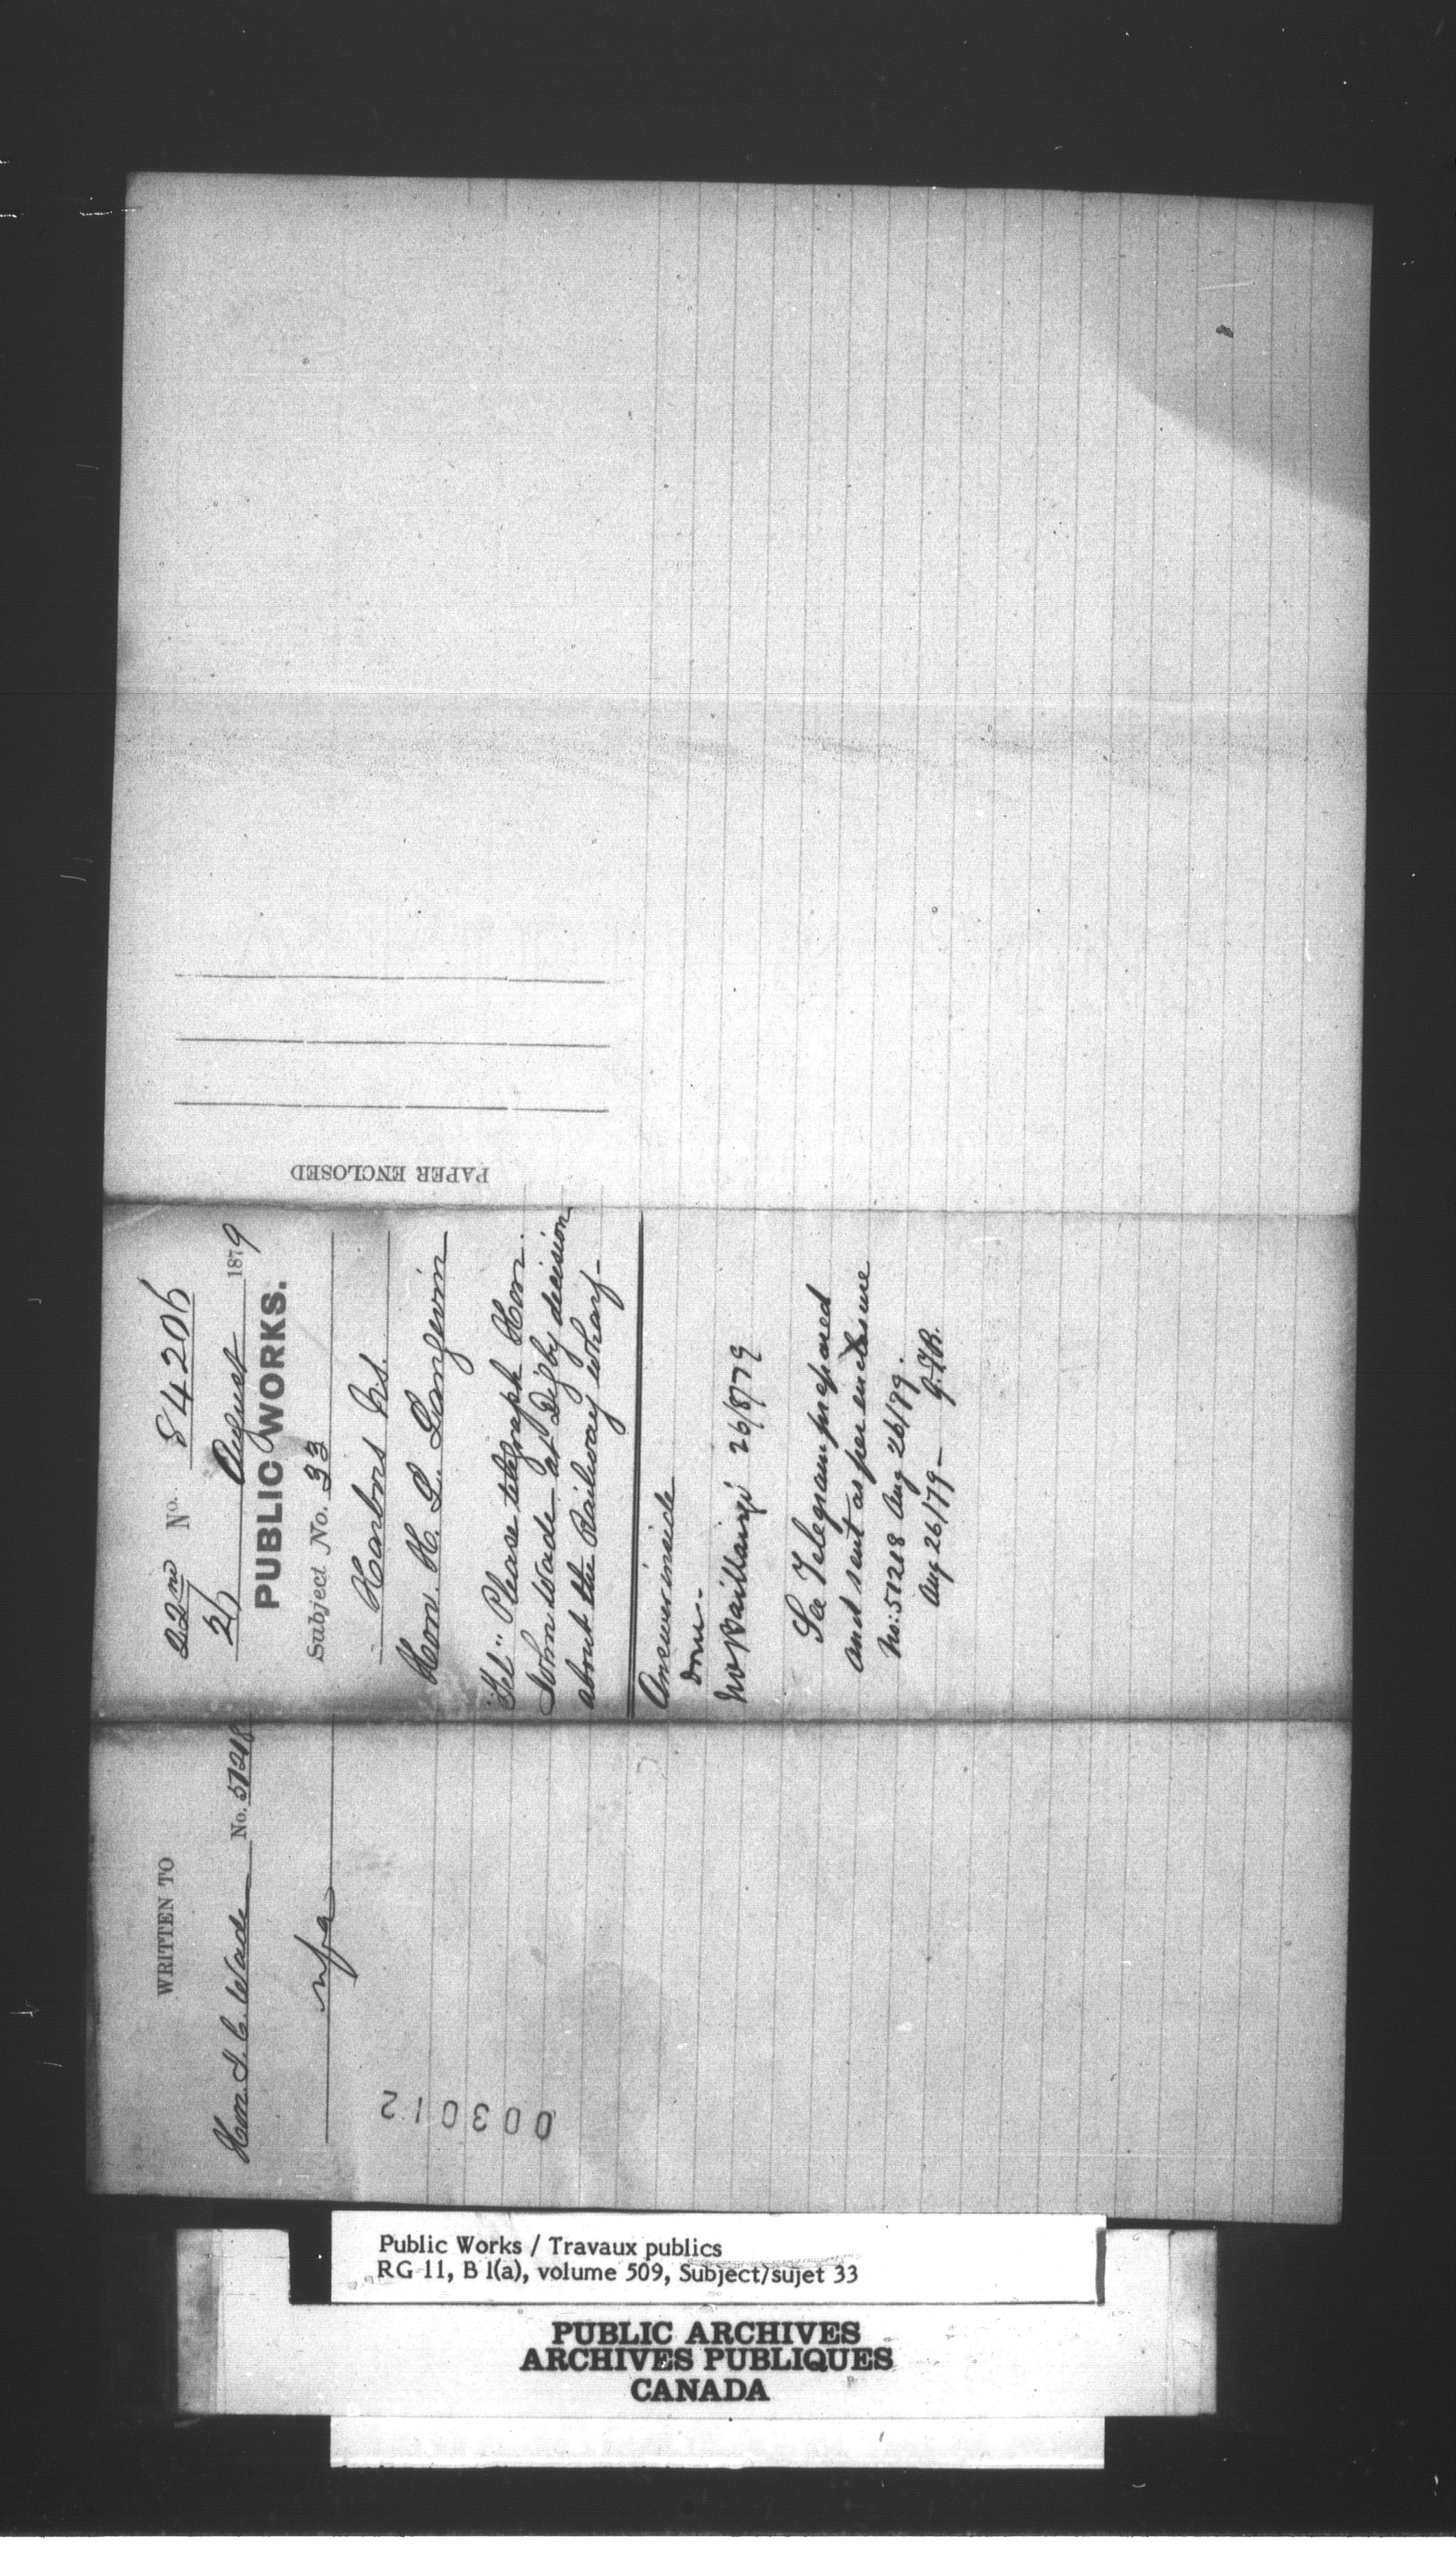 22nd No. 84206
26 August 1879
PUBLIC WORKS.
Subject No. 33
Harbors N.S.
Hon. H. L. Langevin
"Tel" Please telegraph Hon.
John Wade at Digby decision
about the Railway wharf
Answer inside
done.
Baillairgé 26/8/79
See Telegram prepared
and sent as per enclosure
No: 51218 Aug 26/79.
Aug 26/79
PAPER ENCLOSED
WRITTEN TO
Hon. J. C. Wade No. 51218
nfa
003012
Public Works / Travaux publics
RG 11, B 1(a), volume 509, Subject/sujet 33
PUBLIC ARCHIVES
ARCHIVES PUBLIQUES
CANADA